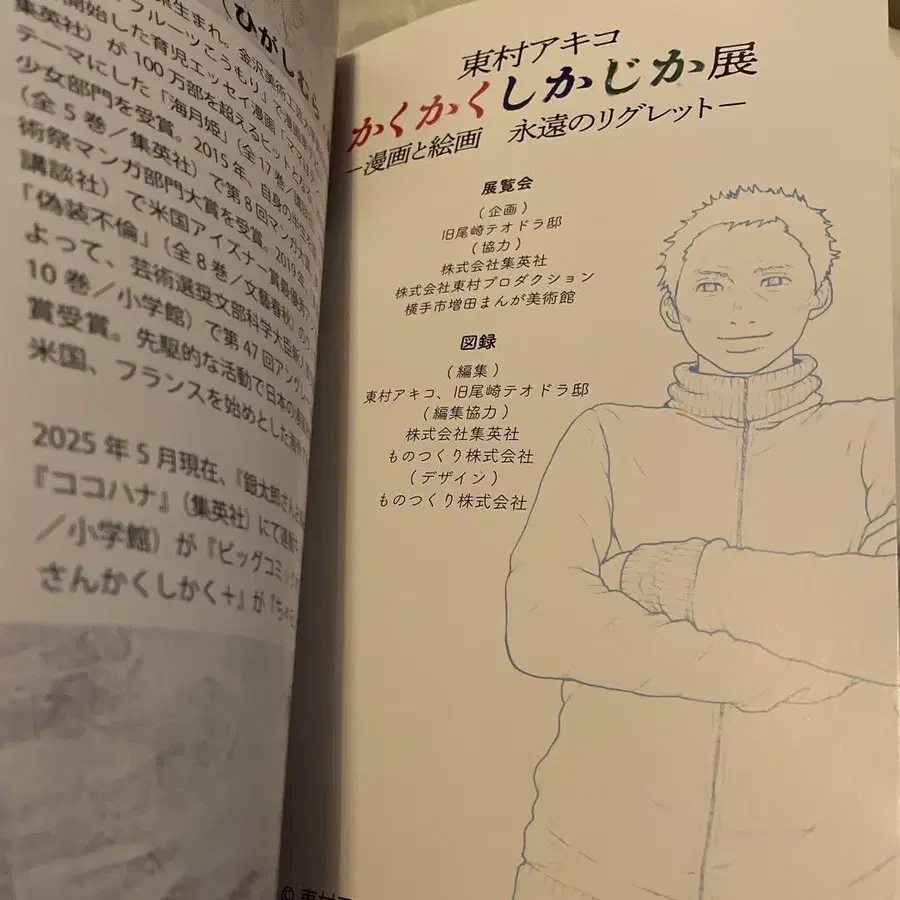 (ひがしむら
生まれ。金沢美術工芸大
フルーツこうもり』で漫画家
開始した育児エッセイ漫画『ママは
集英社）が100万部を超えるヒットとな
テーマにした「海月姫」（全17巻／講談
少女部門を受賞。2015年、自身の半生を
（全5巻／集英社）で第8回マンガ大賞
術祭マンガ部門大賞を受賞。2019年
講談社）で米国アイズナー賞最優秀
「偽装不倫」（全8巻／文藝春秋）の
よって、芸術選奨文部科学大臣新人賞
10巻／小学館）で第47回アングレー
賞受賞。先駆的な活動で日本の
米国、フランスを始めとした海外
2025年5月現在、『銀太郎さんお
『ココハナ』（集英社）にて連載
／小学館）が『ビッグコミック
さんかくしかく＋』が『ちゃ
東村アキコ
かくかくしかじか展
―漫画と絵画　永遠のリグレット―
展覧会
（企画）
旧尾崎テオドラ邸
（協力）
株式会社集英社
株式会社東村プロダクション
横手市増田まんが美術館
図録
（編集）
東村アキコ、旧尾崎テオドラ邸
（編集協力）
株式会社集英社
ものつくり株式会社
（デザイン）
ものつくり株式会社
© 東村